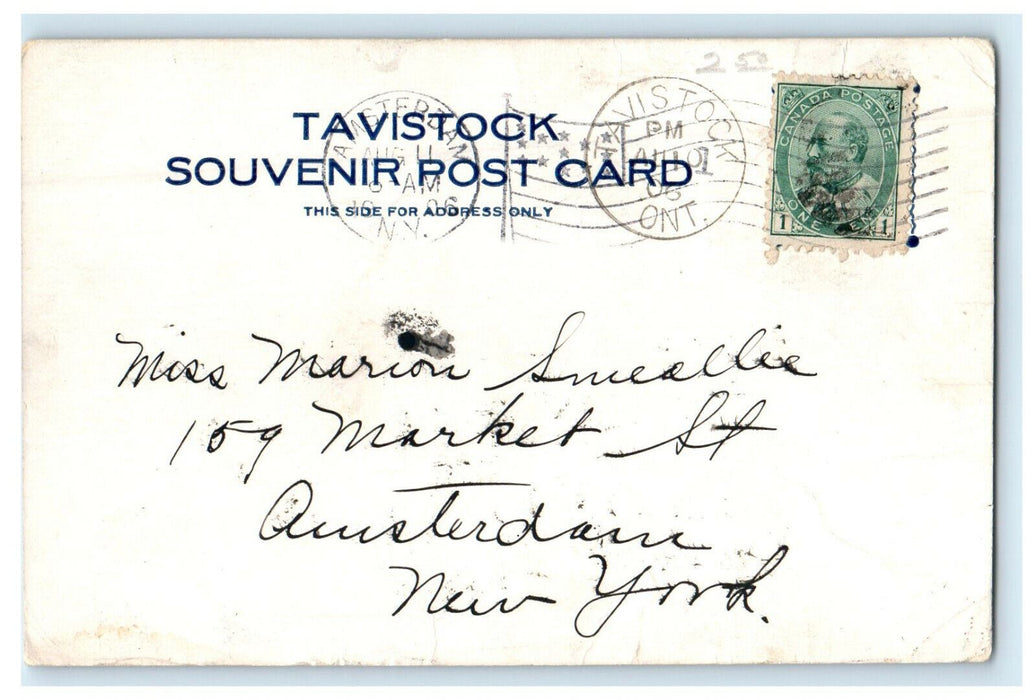 2 50
TAVISTOCK
SOUVENIR POST CARD
THIS SIDE FOR ADDRESS ONLY
AMSTERDAM
AUG 11
AM
06
N.Y.
TAVISTOCK
PM
ONT.
CANADA POSTAGE
1 ONE CENT 1
Miss Marion Smeallie
159 Market St
Amsterdam
New York.